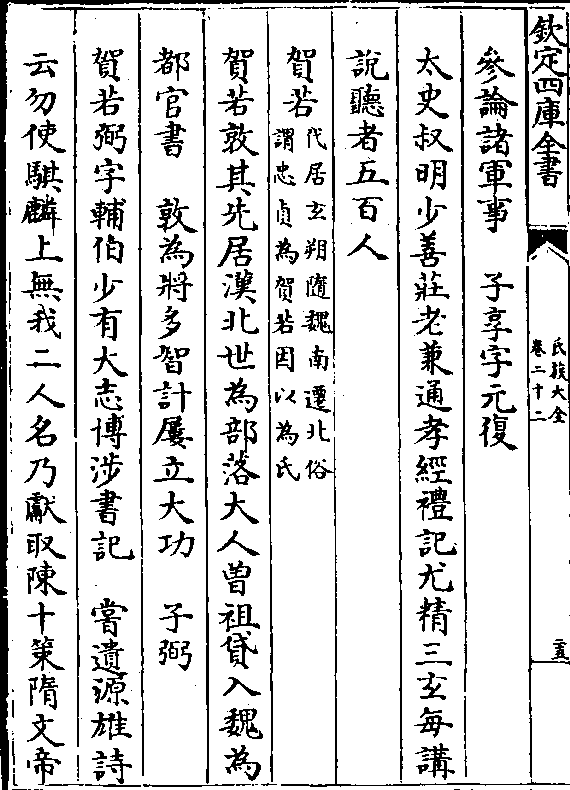 欽定四庫全書
氏族大全
卷二十二
二五
參論諸軍事　子享字元復
太史叔明少善莊老兼通孝經禮記尤精三玄每講
說聽者五百人
賀若代居玄朔隨魏南遷北俗
謂忠貞為賀若因以為氏
賀若敦其先居漠北世為部落大人曾祖貸入魏為
都官書　敦為將多智計屢立大功　子弼
賀若弼字輔伯少有大志博涉書記　嘗遺源雄詩
云勿使騏麟上無我二人名乃獻取陳十策隋文帝